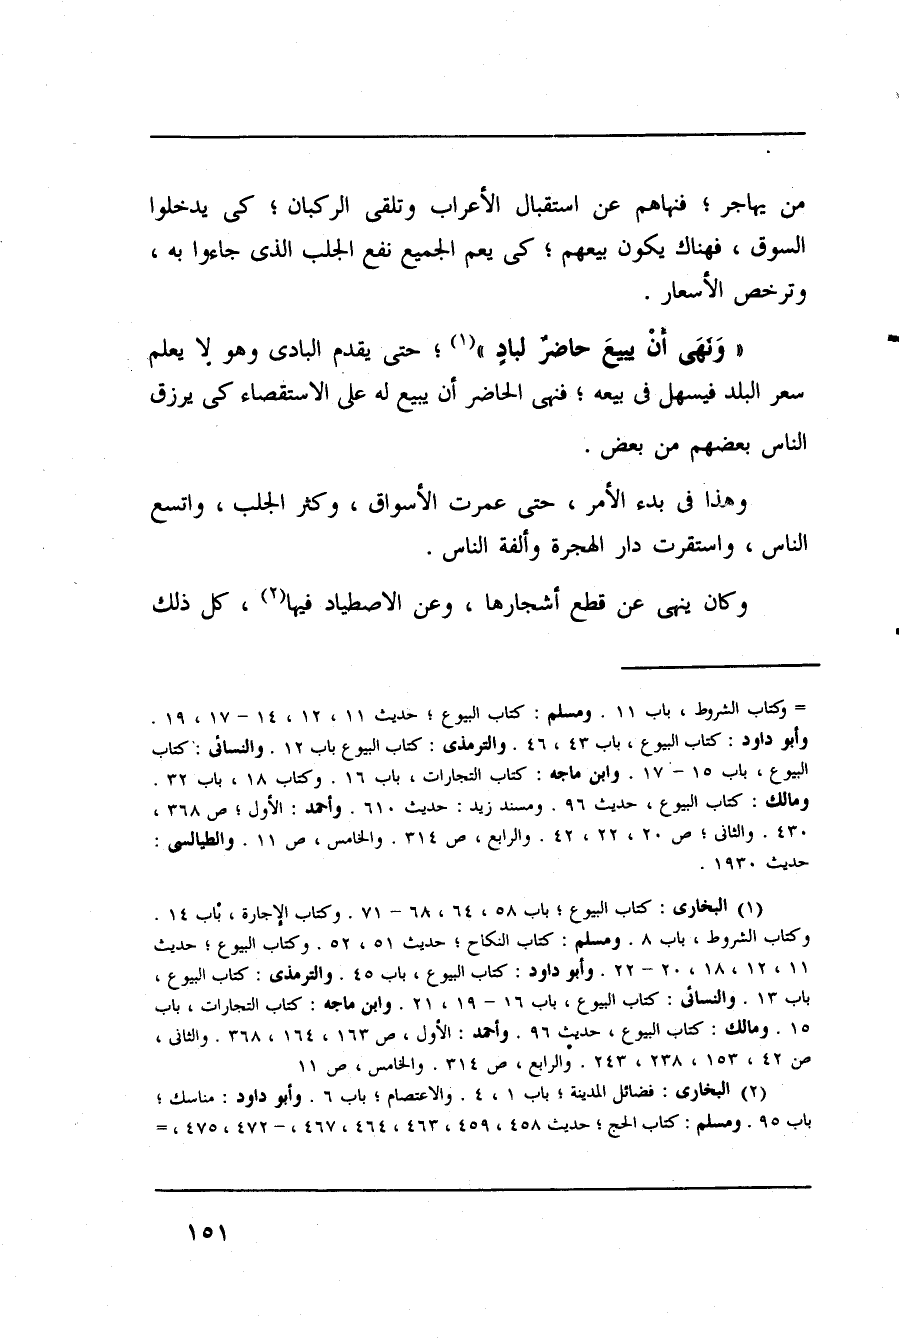 من يهاجر ؛ فنهاهم عن استقبال الأعراب وتلقى الركبان ؛ كى يدخلوا
السوق ، فهناك يكون بيعهم ؛ كى يعم الجميع نفع الجلب الذى جاءوا به ،
وترخص الأسعار .
« وَنَهَى أَنْ يبيعَ حاضرٌ لبادٍ »(١) ؛ حتى يقدم البادى وهو لا يعلم
سعر البلد فيسهل فى بيعه ؛ فنهى الحاضر أن يبيع له على الاستقصاء كى يرزق
الناس بعضهم من بعض .
وهذا فى بدء الأمر ، حتى عمرت الأسواق ، وكثر الجلب ، واتسع
الناس ، واستقرت دار الهجرة وألفة الناس .
وكان ينهى عن قطع أشجارها ، وعن الاصطياد فيها(٢) ، كل ذلك
= وكتاب الشروط ، باب ١١ . ومسلم : كتاب البيوع ؛ حديث ١١ ، ١٢ ، ١٤ – ١٧ ، ١٩ .
وأبو داود : كتاب البيوع ، باب ٤٣ ، ٤٦ . والترمذى : كتاب البيوع باب ١٢ . والنسائى : كتاب
البيوع ، باب ١٥ – ١٧ . وابن ماجه : كتاب التجارات ، باب ١٦ . وكتاب ١٨ ، باب ٣٢ .
ومالك : كتاب البيوع ، حديث ٩٦ . ومسند زيد : حديث ٦١٠ . وأحمد : الأول ؛ ص ٣٦٨ ،
٤٣٠ . والثانى ؛ ص ٢٠ ، ٢٢ ، ٤٢ . والرابع ، ص ٣١٤ . والخامس ، ص ١١ . والطيالسى :
حديث ١٩٣٠ .
(١) البخارى : كتاب البيوع ؛ باب ٥٨ ، ٦٤ ، ٦٨ – ٧١ . وكتاب الإجارة ، باب ١٤ .
وكتاب الشروط ، باب ٨ . ومسلم : كتاب النكاح ؛ حديث ٥١ ، ٥٢ . وكتاب البيوع ؛ حديث
١١ ، ١٢ ، ١٨ ، ٢٠ – ٢٢ . وأبو داود : كتاب البيوع ، باب ٤٥ . والترمذى : كتاب البيوع ،
باب ١٣ . والنسائى : كتاب البيوع ، باب ١٦ – ١٩ ، ٢١ . وابن ماجه : كتاب التجارات ، باب
١٥ . ومالك : كتاب البيوع ، حديث ٩٦ . وأحمد : الأول ، ص ١٦٣ ، ١٦٤ ، ٣٦٨ . والثانى ،
ص ٤٢ ، ١٥٣ ، ٢٣٨ ، ٢٤٣ . والرابع ، ص ٣١٤ . والخامس ، ص ١١
(٢) البخارى : فضائل المدينة ؛ باب ١ ، ٤ . والاعتصام ؛ باب ٦ . وأبو داود : مناسك ؛
باب ٩٥ . ومسلم : كتاب الحج ؛ حديث ٤٥٨ ، ٤٥٩ ، ٤٦٣ ، ٤٦٤ ، ٤٦٧ ، – ٤٧٢ ، ٤٧٥ ، =
١٥١